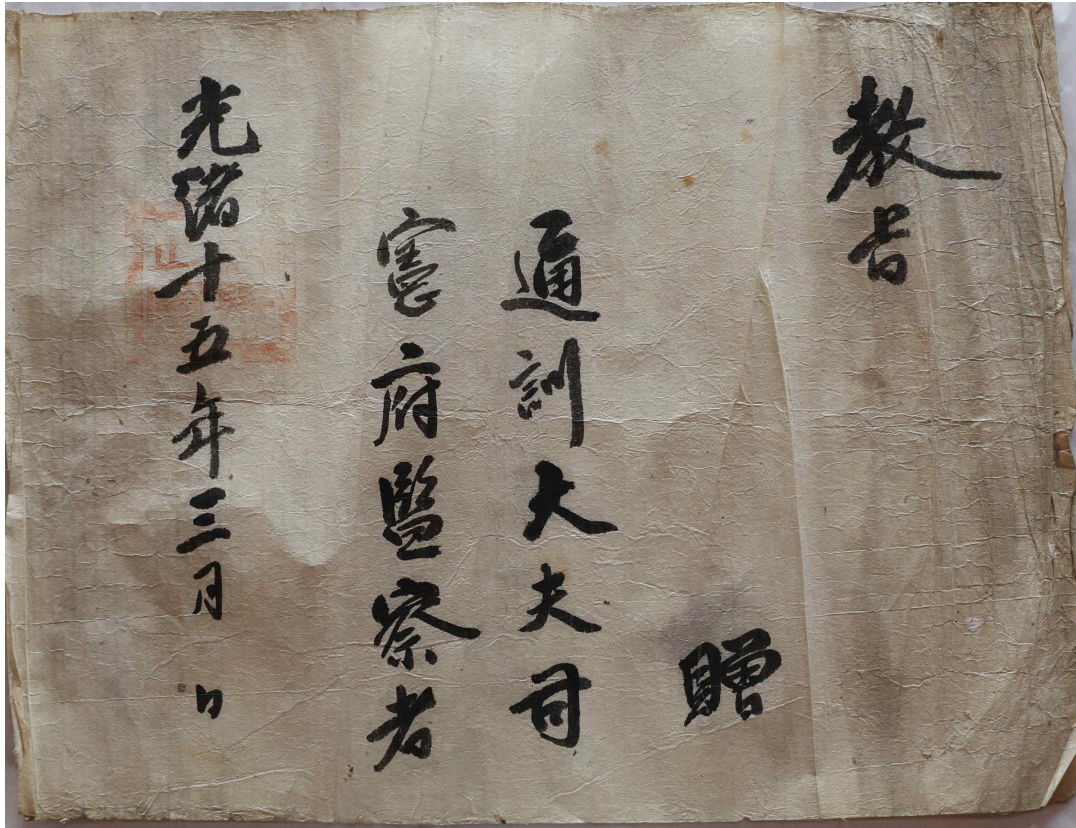 教旨
贈
通訓大夫司
憲府監察者
光緖十五年三月　日